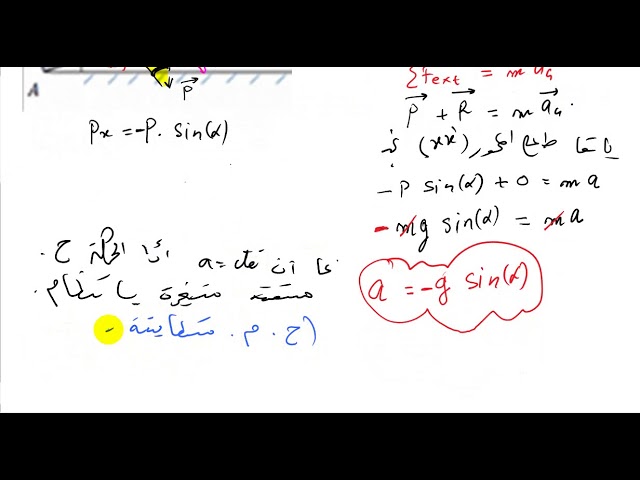 A
P
Px = -P. sin(α)
ΣFext = m aG
P + R = m aG.
بإسقاط على المحور (xx') نجد
-P sin(α) + 0 = m a
-mg sin(α) = m a
a = -g sin(α)
بما أن a = cte فإن الحركة ح
مستقيمة متغيرة بانتظام.
(ح. م. متباطئة -